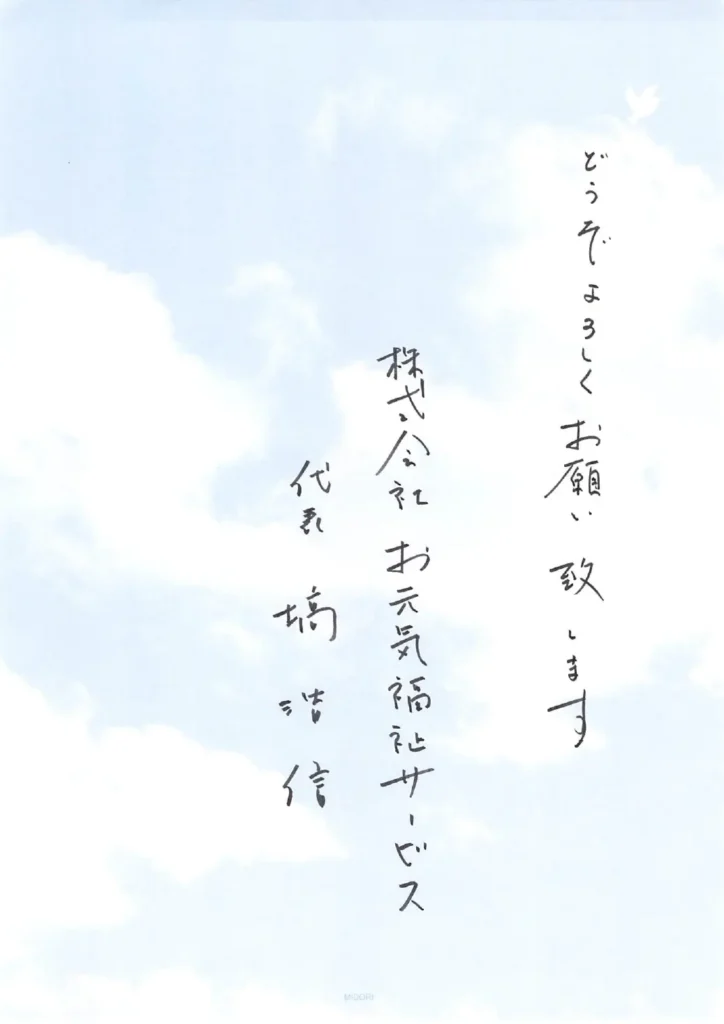 どうぞよろしくお願い致します
株式会社 お元気福祉サービス
代表 塙 浩信
MIDORI